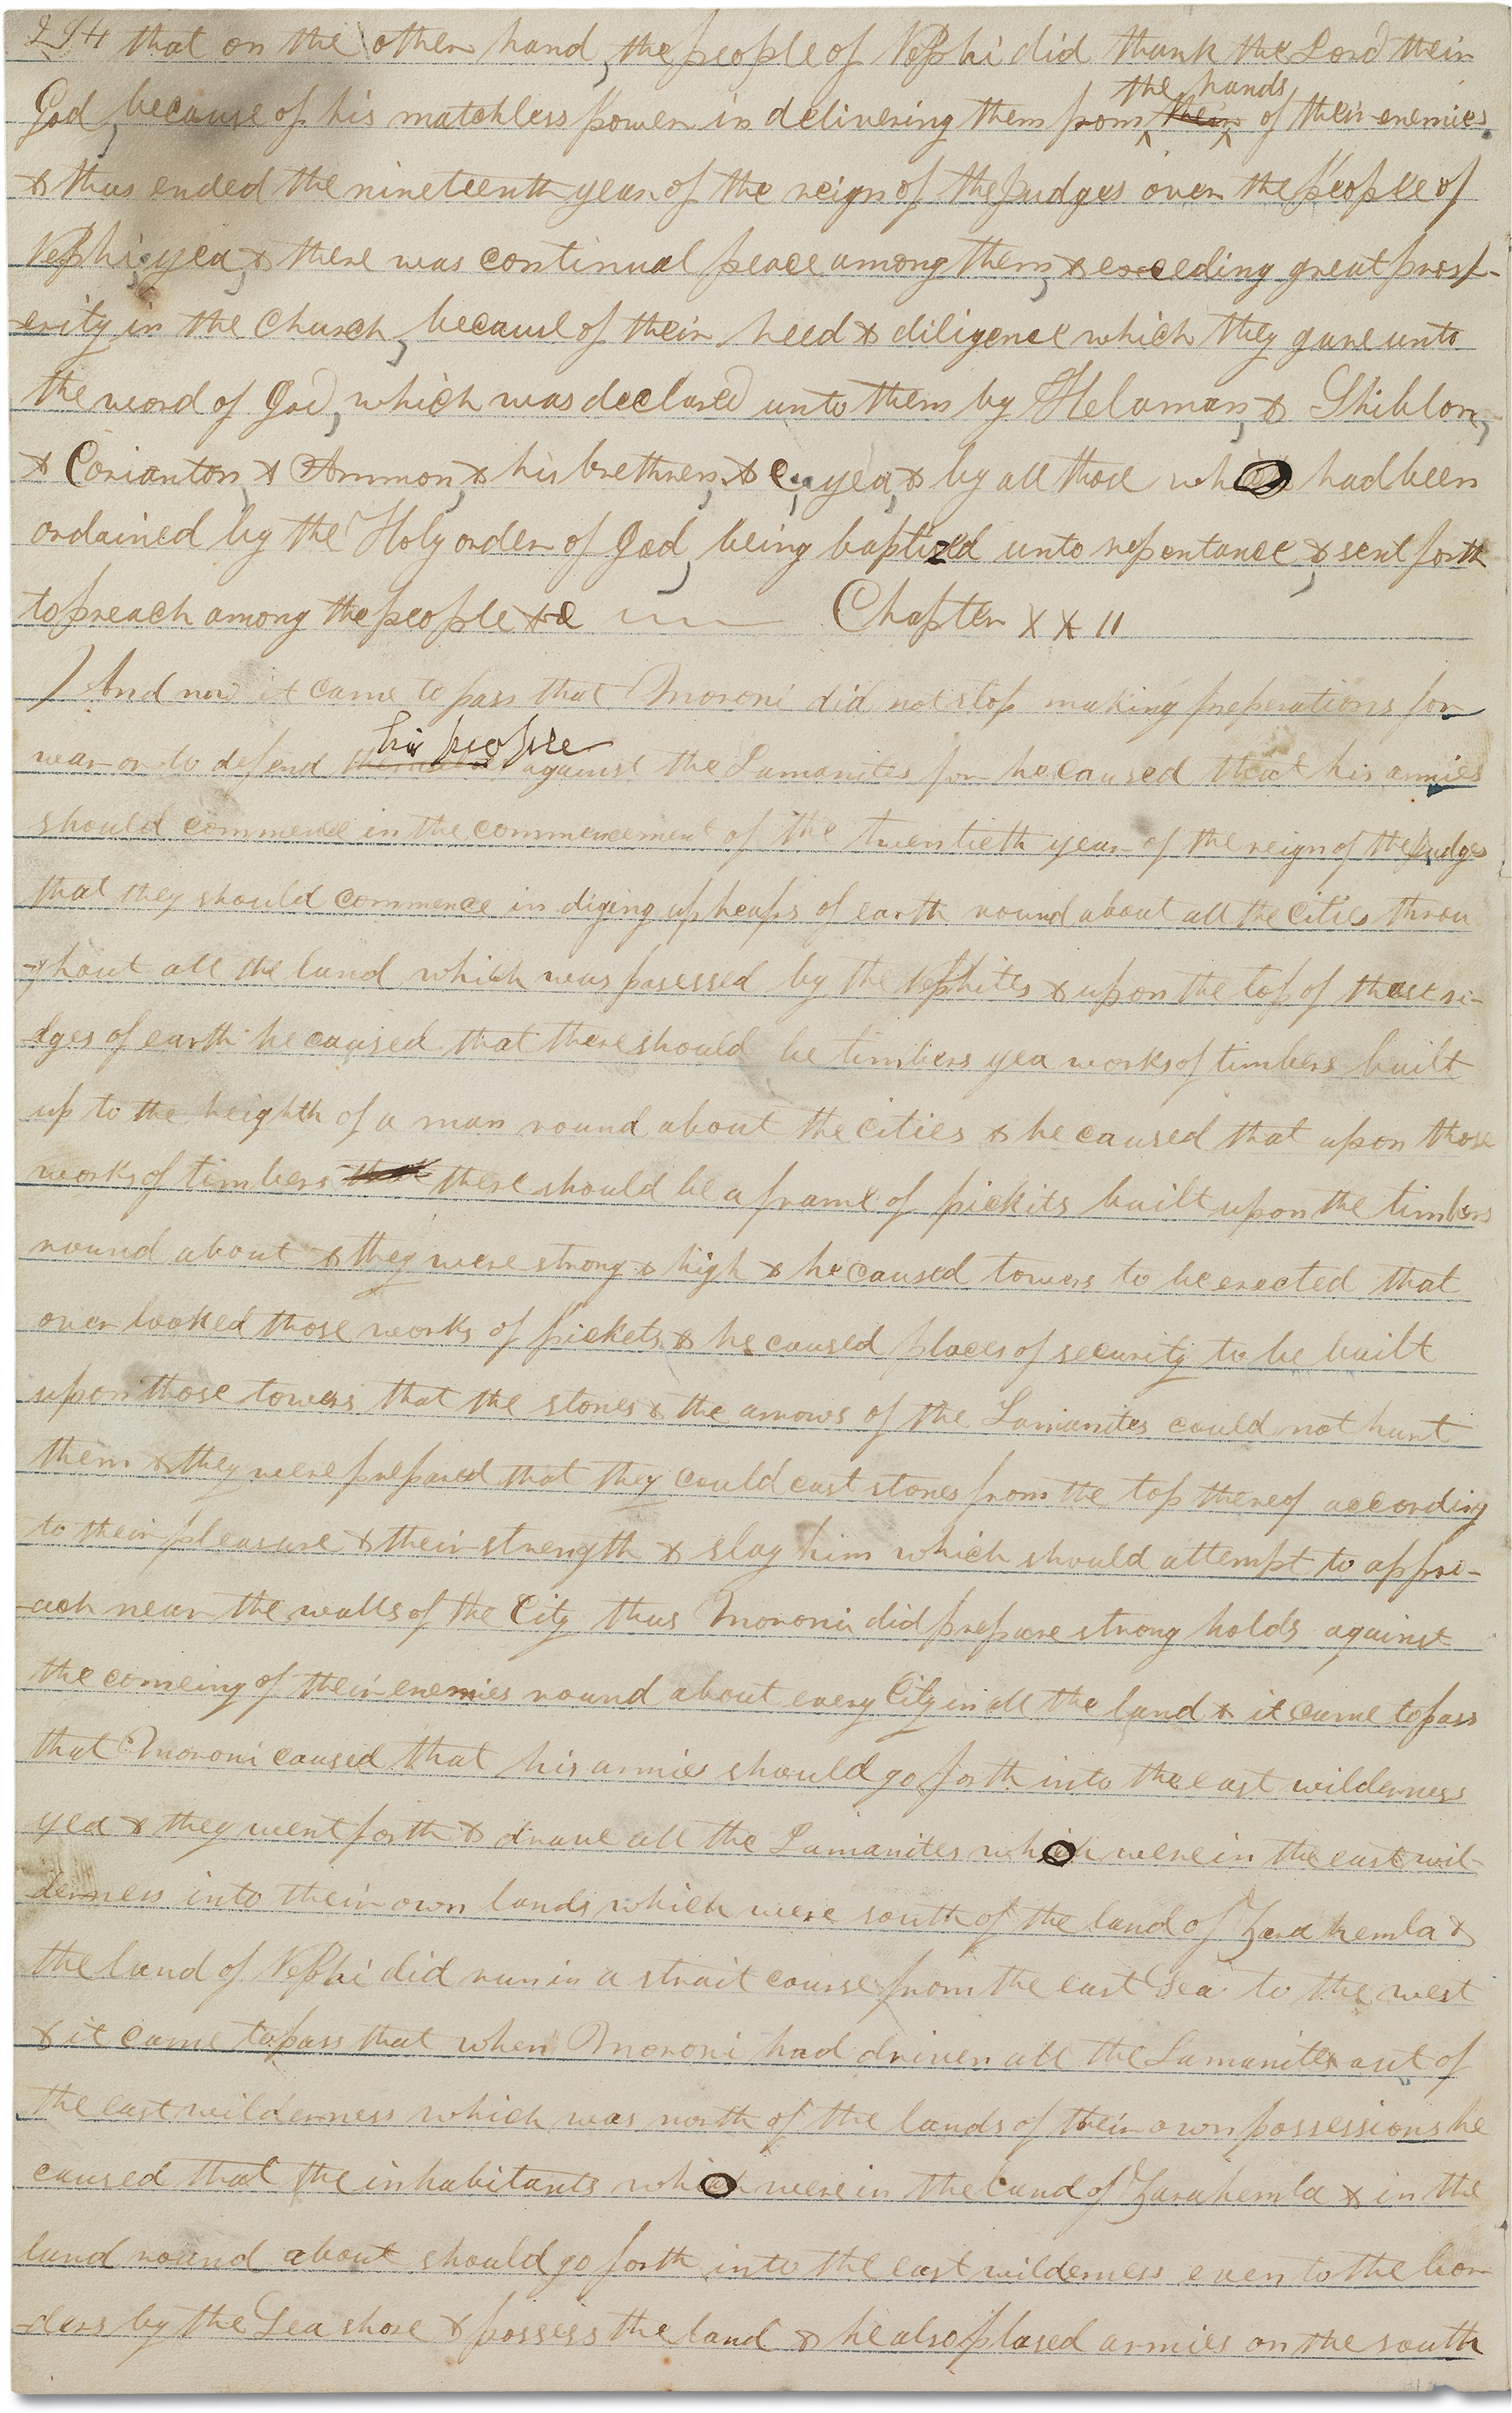 284 that on the other hand, the people of Nephi did thank the Lord their
God, because of his matchless power in delivering them from ^the hands^ ~~their~~ of their enemies.
& thus ended the nineteenth year of the reign of the Judges over the People of
Nephi; yea, & there was continual peace among them, & exceding great prosp-
-erity in the Church, because of their heed & diligence which they gave unto
the word of God, which was declared unto them by Helaman, & Shiblon,
& Corianton, & Ammon, & his brethren, & c, yea, & by all those who had been
ordained by the Holy order of God, being baptized unto repentance, & sent forth
to preach among the people &c Chapter XXII
And now it came to pass that Moroni did not stop making preperations for
war or to defend ~~themselves~~ ^his people^ against the Lamanites for he caused that his armies
should commence in the commencement of the twentieth year of the reign of the Judges
that they should commence in diging up heaps of earth round about all the Cities throu
-ghout all the land which was posessed by the Nephites & upon the top of those ri-
-dges of earth he caused that there should be timbers yea works of timbers built
up to the heighth of a man round about the Cities & he caused that upon those
works of timbers ~~that~~ there should be a frame of pickits built upon the timbers
round about & they were strong & high & he caused towers to be erected that
over looked those works of pickets & he caused places of security to be built
upon those towers that the stones & the arrows of the Lamanites could not hurt
them & they were prepared that they could cast stones from the top thereof according
to their pleasure & their strength & slay him which should attempt to appro-
-ach near the walls of the City thus Moroni did prepare strong holds against
the comeing of their enemies round about every City in all the land & it came to pass
that Moroni caused that his armies should go forth into the east wilderness
yea & they went forth & drave all the Lamanites which were in the east wil-
-derness into their own lands which were south of the land of Zarahemla &
the land of Nephi did run in a strait course from the east Sea to the west
& it came to pass that when Moroni had driven all the Lamanites out of
the east wilderness which was north of the lands of their own possessions he
caused that the inhabitants which were in the land of Zarahemla & in the
land round about should go forth into the east wilderness even to the bor-
-ders by the Sea shore & possess the land & he also plased armies on the south